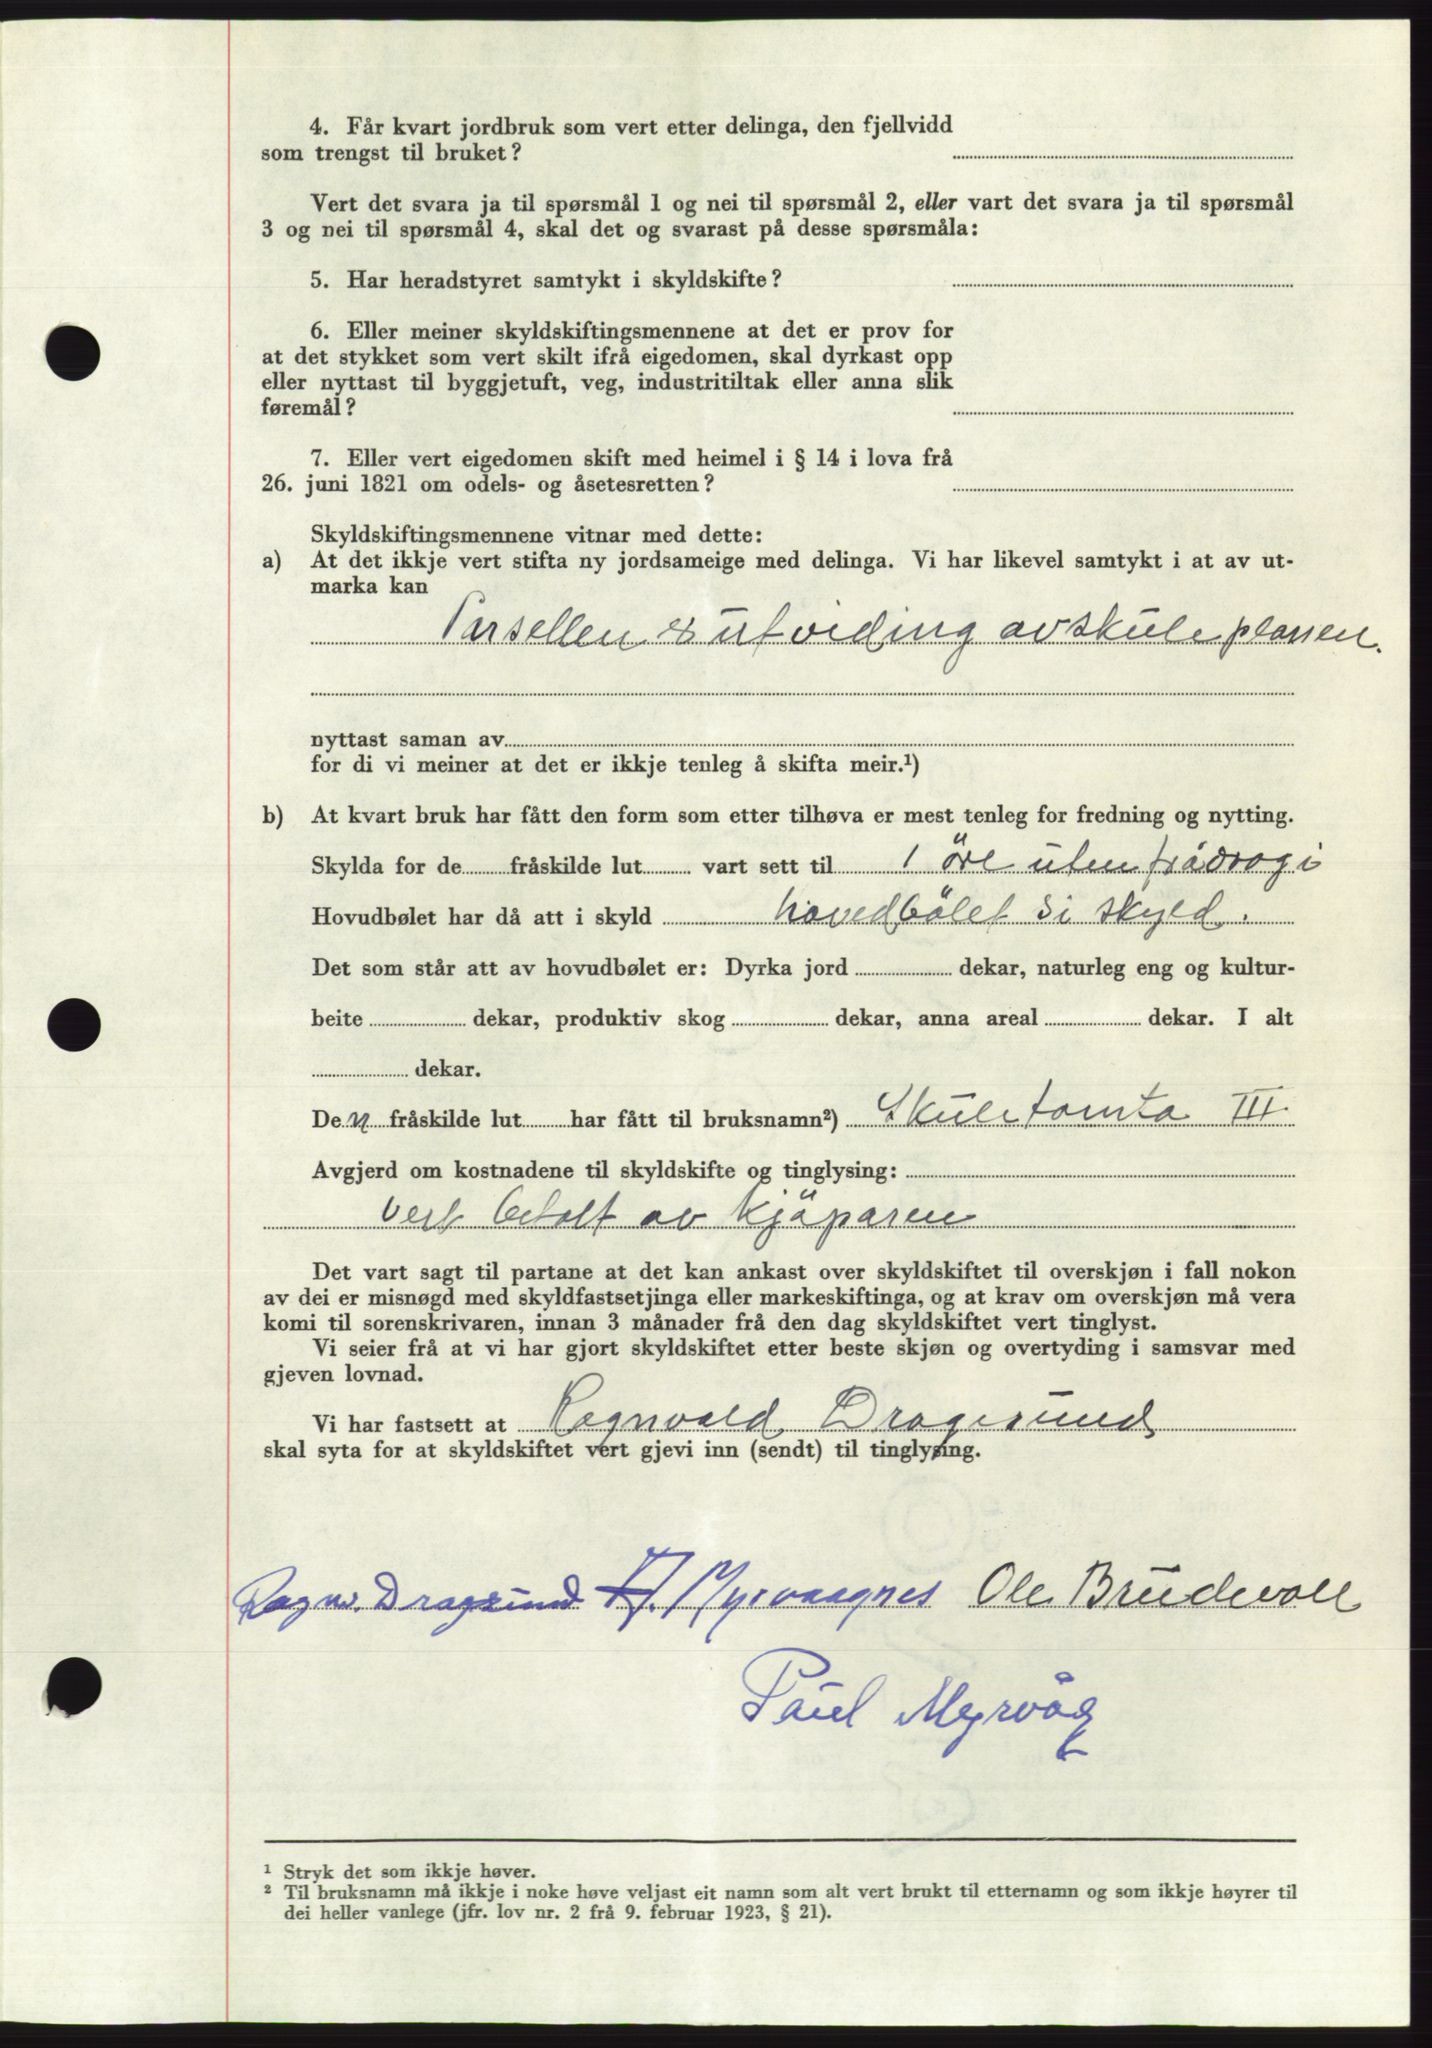 4. Får kvart jordbruk som vert etter delinga, den fjellvidd
som trengst til bruket?
Vert det svara ja til spørsmål 1 og nei til spørsmål 2, eller vart det svara ja til spørsmål
3 og nei til spørsmål 4, skal det og svarast på desse spørsmåla:
5. Har heradstyret samtykt i skyldskifte?
6. Eller meiner skyldskiftingsmennene at det er prov for
at det stykket som vert skilt ifrå eigedomen, skal dyrkast opp
eller nyttast til byggjetuft, veg, industritiltak eller anna slik
føremål?
7. Eller vert eigedomen skift med heimel i § 14 i lova frå
26. juni 1821 om odels- og åsetesretten?
Skyldskiftingsmennene vitnar med dette:
a) At det ikkje vert stifta ny jordsameige med delinga. Vi har likevel samtykt i at av ut-
marka kan
Parsellen er utviding av skuleplassen.
nyttast saman av
for di vi meiner at det er ikkje tenleg å skifta meir.¹)
b) At kvart bruk har fått den form som etter tilhøva er mest tenleg for fredning og nytting.
Skylda for de fråskilde lut vart sett til 1 öre uten frådrag i
Hovudbølet har då att i skyld hovedbölet si skyld.
Det som står att av hovudbølet er: Dyrka jord dekar, naturleg eng og kultur-
beite dekar, produktiv skog dekar, anna areal dekar. I alt
dekar.
Den fråskilde lut har fått til bruksnamn²) Skuletomta III
Avgjerd om kostnadene til skyldskifte og tinglysing:
vert betalt av kjöparen
Det vart sagt til partane at det kan ankast over skyldskiftet til overskjøn i fall nokon
av dei er misnøgd med skyldfastsetjinga eller markeskiftinga, og at krav om overskjøn må vera
komi til sorenskrivaren, innan 3 månader frå den dag skyldskiftet vert tinglyst.
Vi seier frå at vi har gjort skyldskiftet etter beste skjøn og overtyding i samsvar med
gjeven lovnad.
Vi har fastsett at Ragnvald Dragesund
skal syta for at skyldskiftet vert gjevi inn (sendt) til tinglysing.
Ragnv. Dragesund A. Myrvaagnes Ole Brudevoll
Paul Myrvåg
¹ Stryk det som ikkje høver.
² Til bruksnamn må ikkje i noke høve veljast eit namn som alt vert brukt til etternamn og som ikkje høyrer til
dei heller vanlege (jfr. lov nr. 2 frå 9. februar 1923, § 21).